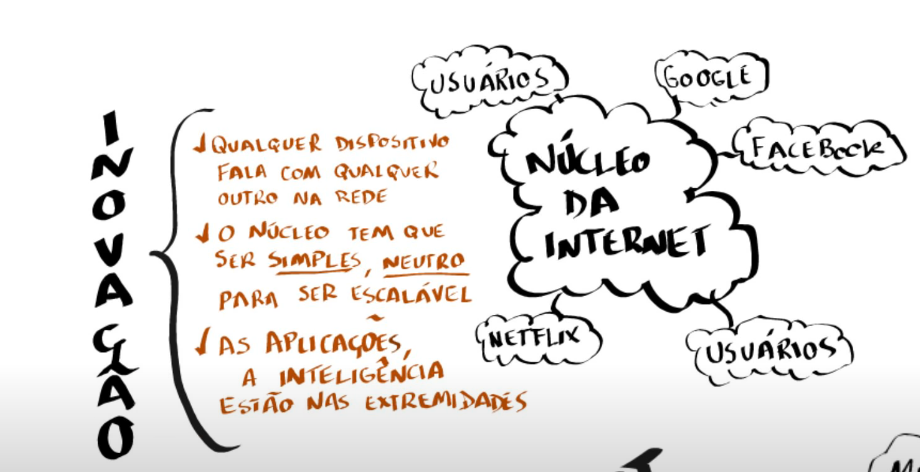 INOVAÇÃO
✓ QUALQUER DISPOSITIVO
FALA COM QUALQUER
OUTRO NA REDE
✓ O NÚCLEO TEM QUE
SER SIMPLES, NEUTRO
PARA SER ESCALÁVEL
✓ AS APLICAÇÕES,
A INTELIGÊNCIA
ESTÃO NAS EXTREMIDADES
USUÁRIOS
GOOGLE
FACEBOOK
NÚCLEO
DA
INTERNET
NETFLIX
USUÁRIOS